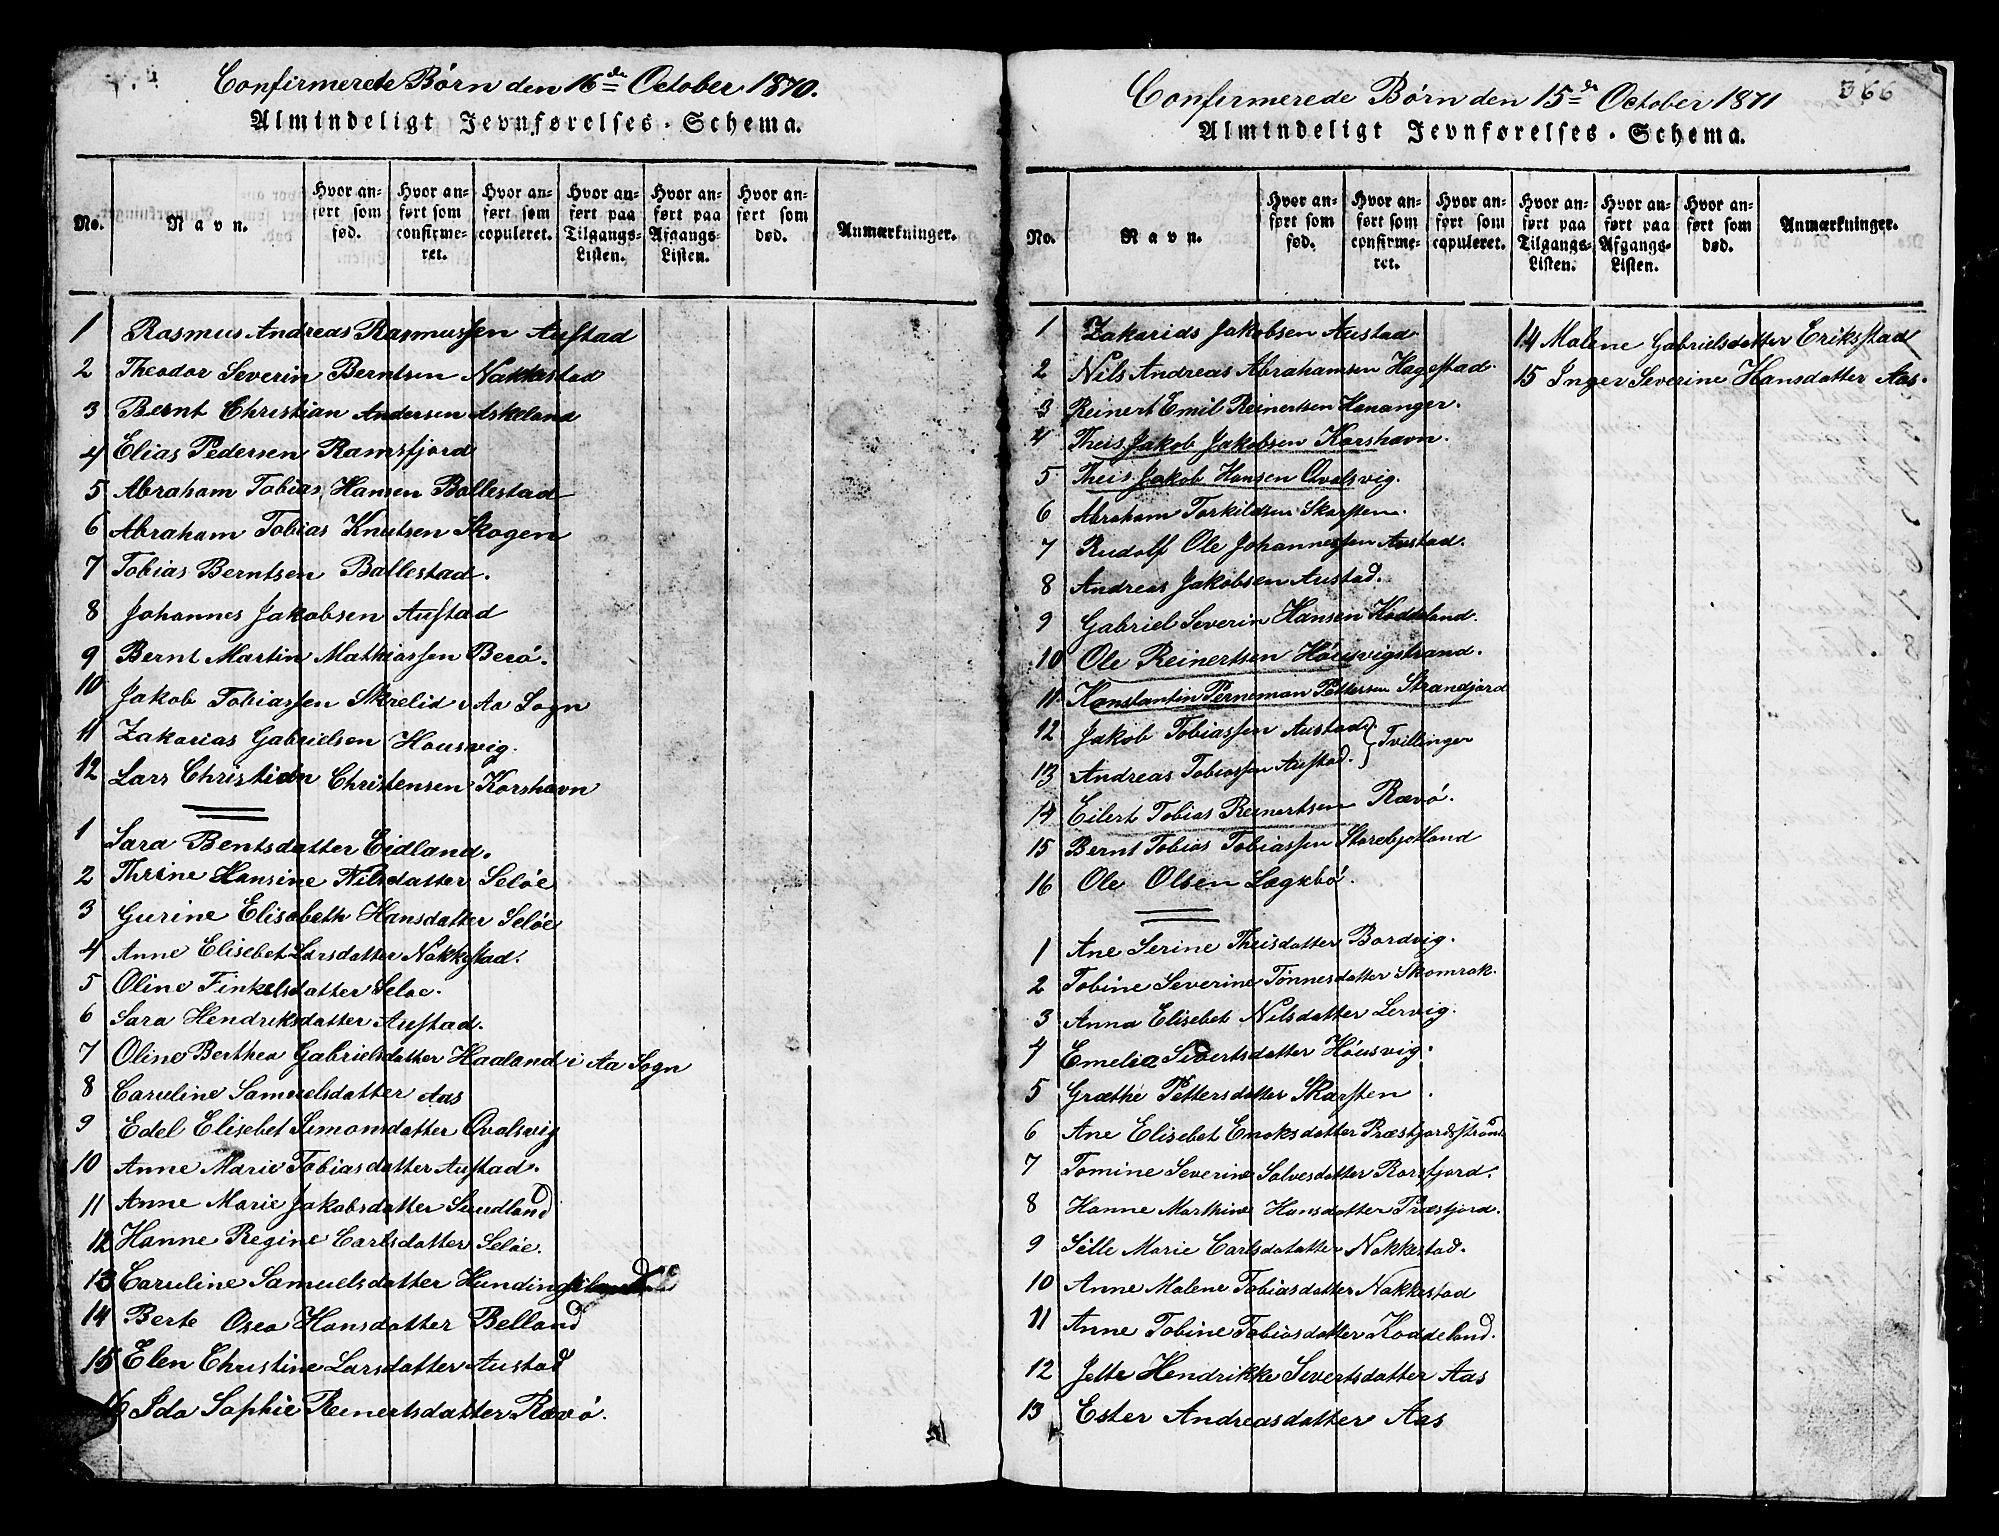 Confirmerede Børn den 16de October 1870.
Almindeligt Jevnførelses-Schema.
No.
Navn.
Hvor anført som fød.
Hvor anført som confirmeret.
Hvor anført som copuleret.
Hvor anført paa Tilgangs-Listen.
Hvor anført paa Afgangs-Listen.
Hvor anført som død.
Anmærkninger.
1 Rasmus Andreas Rasmussen Austad
2 Theodor Severin Berntsen Nakkestad
3 Bernt Christian Andersen Askeland
4 Elias Pedersen Ramsfjord
5 Abraham Tobias Hansen Ballestad
6 Abraham Tobias Knutsen Skogen
7 Tobias Berntsen Ballestad.
8 Johannes Jakobsen Austad
9 Bernt Martin Mathiassen Berø.
10 Jakob Tobiassen Skrelid i Aa Sogn
11 Zakarias Gabrielsen Housvig.
12 Lars Christian Christensen Korshavn
1 Sara Bentsdatter Eidland.
2 Thrine Hansine Nilsdatter Seløe
3 Gurine Elisabeth Hansdatter Seløe
4 Anne Elisebet Larsdatter Nakkestad.
5 Oline Finkelsdatter Seloe.
6 Sara Hendriksdatter Austad.
7 Oline Berthea Gabrielsdatter Haaland i Aa Sogn
8 Caruline Samuelsdatter Aas
9 Edel Elisebet Simonsdatter Qvalsvig
10 Anne Marie Tobiasdatter Austad.
11 Anne Marie Jakobsdatter Sundland
12 Hanne Regine Carlsdatter Seløe.
13 Caruline Samuelsdatter
14 Berte Osea Hansdatter Belland
15 Elen Christine Larsdatter Austad
16 Ida Sophie Reinertsdatter Rævø.
366
Confirmerede Børn den 15de October 1871
Almindeligt Jevnførelses-Schema.
No.
Navn.
Hvor anført som fød.
Hvor anført som confirmeret.
Hvor anført som copuleret.
Hvor anført paa Tilgangs-Listen.
Hvor anført paa Afgangs-Listen.
Hvor anført som død.
Anmærkninger.
1 Zakarids Jakobsen Austad
2 Nils Andreas Abrahamsen Hagestad.
3 Reinert Emil Reinertsen Hananger.
4 Theis Jakob Jakobsen Korshavn.
5 Theis Jakob Hansen Qvalsvig.
6 Abraham Torkildsen Skarsten.
7 Rudolf Ole Johannessen Austad.
8 Andreas Jakobsen Austad.
9 Gabriel Severin Hansen Koddeland.
10 Ole Reinertsen Høusvigstrand.
11 Konstantin Perneman Pettersen Strandfjord
12 Jakob Tobiassen Austad.
13 Andreas Tobiassen Austad. } Tvillinger
14 Eilert Tobias Reinertsen Rævø.
15 Bernt Tobias Tobiassen Storebjotland
16 Ole Olsen Lægebø.
1 Ane Serine Theisdatter Bordvig.
2 Tobine Severine Tønnesdatter Skomrak.
3 Anna Elisebet Nilsdatter Lervig.
4 Emelia Sivertsdatter Høusvig.
5 Græthe Pettersdatter Skarsten.
6 Ane Elisebet Enoksdatter Præstfjordsstrand
7 Tomine Severine Salvesdatter Rorsfjord.
8 Hanne Marthine Hansdatter Præsfjord.
9 Sille Marie Carlsdatatter Nakkestad.
10 Anne Malene Tobiasdatter Nakkestad
11 Anne Tobine Tobiasdatter Koddeland.
12 Jette Hendrikke Sivertsdatter Aas
13 Ester Andreasdatter Aas
14 Malene Gabrielsdatter Eriksstad
15 Inger Severine Hansdatter Aas.